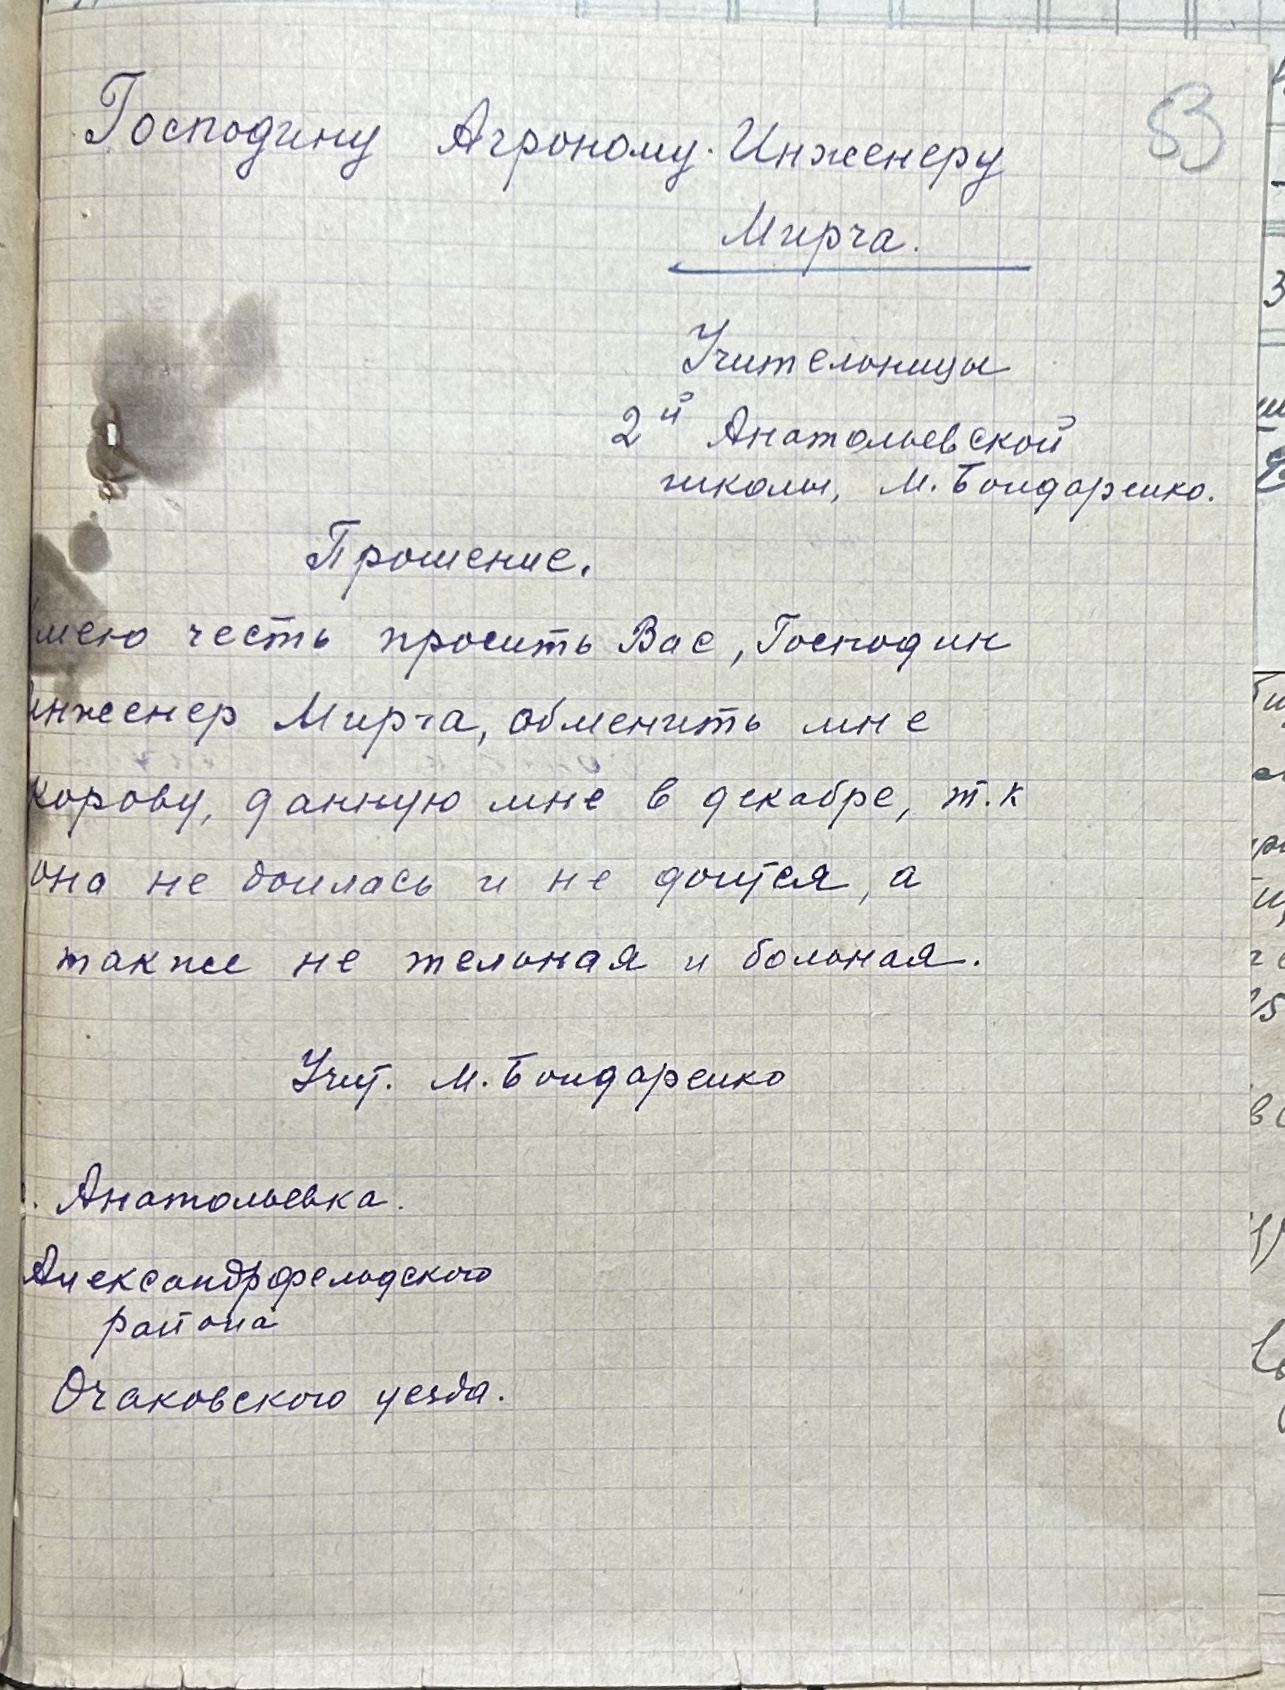 53
Господину Агроному-Инженеру
Мирча.
Учительницы
2й Анатольевской
школы, М. Бондаренко.
Прошение.
Имею честь просить Вас, Господин
Инженер Мирча, обменить мне
корову, данную мне в декабре, т.к
она не доилась и не доится, а
также не тельная и больная.
Учит. М. Бондаренко
с. Анатольевка.
Александрфельдского
района
Очаковского уезда.